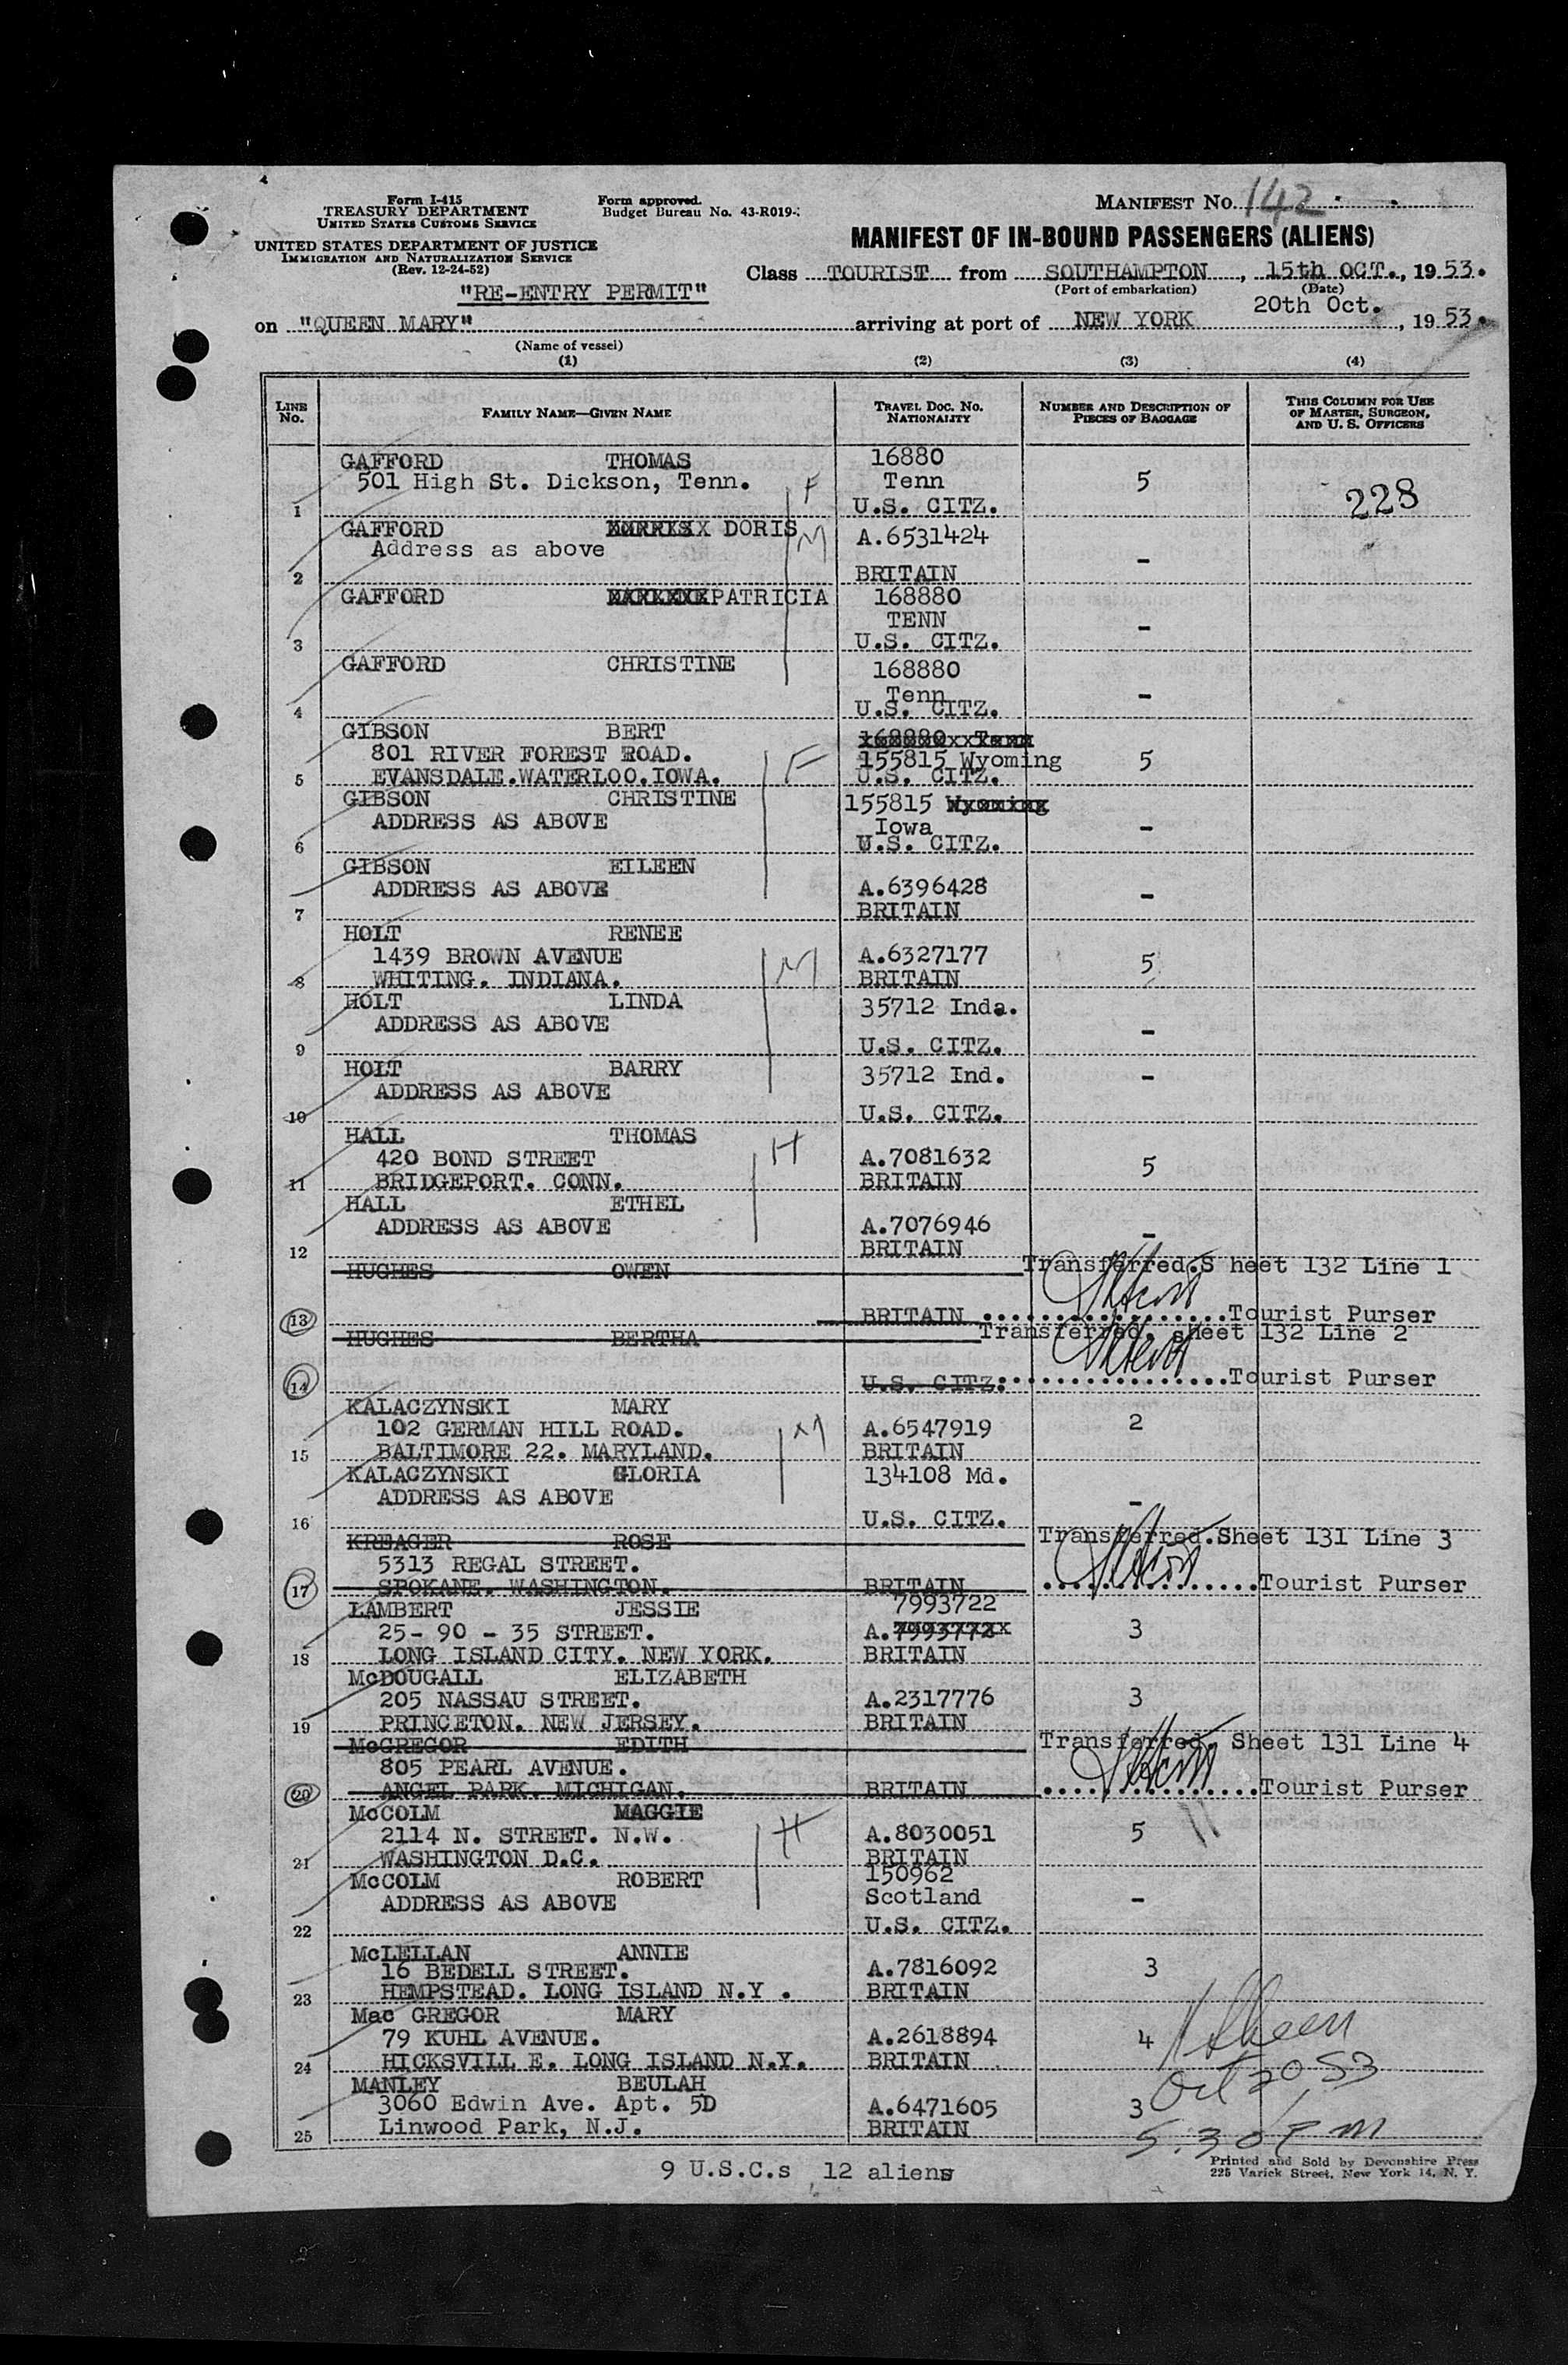 Form I-415
TREASURY DEPARTMENT
UNITED STATES CUSTOMS SERVICE
UNITED STATES DEPARTMENT OF JUSTICE
IMMIGRATION AND NATURALIZATION SERVICE
(Rev. 12-24-52)
Form approved.
Budget Bureau No. 43-R019-
MANIFEST NO. 142
MANIFEST OF IN-BOUND PASSENGERS (ALIENS)
Class TOURIST from SOUTHAMPTON, 15th OCT., 1953.
(Port of embarkation) (Date)
"RE-ENTRY PERMIT"
on "QUEEN MARY" arriving at port of NEW YORK 20th Oct., 1953.
(Name of vessel)
(1) (2) (3) (4)
LINE No. FAMILY NAME—GIVEN NAME TRAVEL DOC. NO. NATIONALITY NUMBER AND DESCRIPTION OF PIECES OF BAGGAGE THIS COLUMN FOR USE OF MASTER, SURGEON, AND U. S. OFFICERS
GAFFORD THOMAS 16880
501 High St. Dickson, Tenn. F Tenn 5 228
1 U.S. CITZ.
GAFFORD DORIS
Address as above M A.6531424 -
2 BRITAIN
GAFFORD PATRICIA 168880
TENN -
3 U.S. CITZ.
GAFFORD CHRISTINE 168880
Tenn -
4 U.S. CITZ.
GIBSON BERT 168880 Tenn
801 RIVER FOREST ROAD. F 155815 Wyoming 5
5 EVANSDALE.WATERLOO.IOWA. U.S. CITZ.
GIBSON CHRISTINE 155815 Wyoming
ADDRESS AS ABOVE Iowa -
6 U.S. CITZ.
GIBSON EILEEN
ADDRESS AS ABOVE A.6396428 -
7 BRITAIN
HOLT RENEE
1439 BROWN AVENUE M A.6327177 5
8 WHITING. INDIANA. BRITAIN
HOLT LINDA 35712 Inda.
ADDRESS AS ABOVE -
9 U.S. CITZ.
HOLT BARRY 35712 Ind. -
ADDRESS AS ABOVE
10 U.S. CITZ.
HALL THOMAS H
420 BOND STREET A.7081632 5
11 BRIDGEPORT. CONN. BRITAIN
HALL ETHEL
ADDRESS AS ABOVE A.7076946 -
12 BRITAIN
HUGHES OWEN Transferred.S heet 132 Line 1
13 BRITAIN ................Tourist Purser
HUGHES BERTHA Transferred. sheet 132 Line 2
14 U.S. CITZ. ................Tourist Purser
KALACZYNSKI MARY
102 GERMAN HILL ROAD. M A.6547919 2
15 BALTIMORE 22. MARYLAND. BRITAIN
KALACZYNSKI GLORIA 134108 Md.
ADDRESS AS ABOVE -
16 U.S. CITZ.
KREAGER ROSE Transferred.Sheet 131 Line 3
5313 REGAL STREET.
17 SPOKANE. WASHINGTON. BRITAIN ................Tourist Purser
LAMBERT JESSIE 7993722
25- 90 - 35 STREET. A.7993772 3
18 LONG ISLAND CITY. NEW YORK. BRITAIN
McDOUGALL ELIZABETH
205 NASSAU STREET. A.2317776 3
19 PRINCETON. NEW JERSEY. BRITAIN
McGREGOR EDITH Transferred. Sheet 131 Line 4
805 PEARL AVENUE.
20 ANGEL PARK. MICHIGAN. BRITAIN ................Tourist Purser
McCOLM MAGGIE H
2114 N. STREET. N.W. A.8030051 5
21 WASHINGTON D.C. BRITAIN
McCOLM ROBERT 150962
ADDRESS AS ABOVE Scotland -
22 U.S. CITZ.
McLELLAN ANNIE
16 BEDELL STREET. A.7816092 3
23 HEMPSTEAD. LONG ISLAND N.Y . BRITAIN
Mac GREGOR MARY
79 KUHL AVENUE. A.2618894 4
24 HICKSVILL E. LONG ISLAND N.Y. BRITAIN
Oct 20 53
MANLEY BEULAH
3060 Edwin Ave. Apt. 5D A.6471605 3
25 Linwood Park, N.J. BRITAIN
5.30 PM
9 U.S.C.s 12 aliens
Printed and Sold by Devonshire Press
225 Varick Street, New York 14, N. Y.